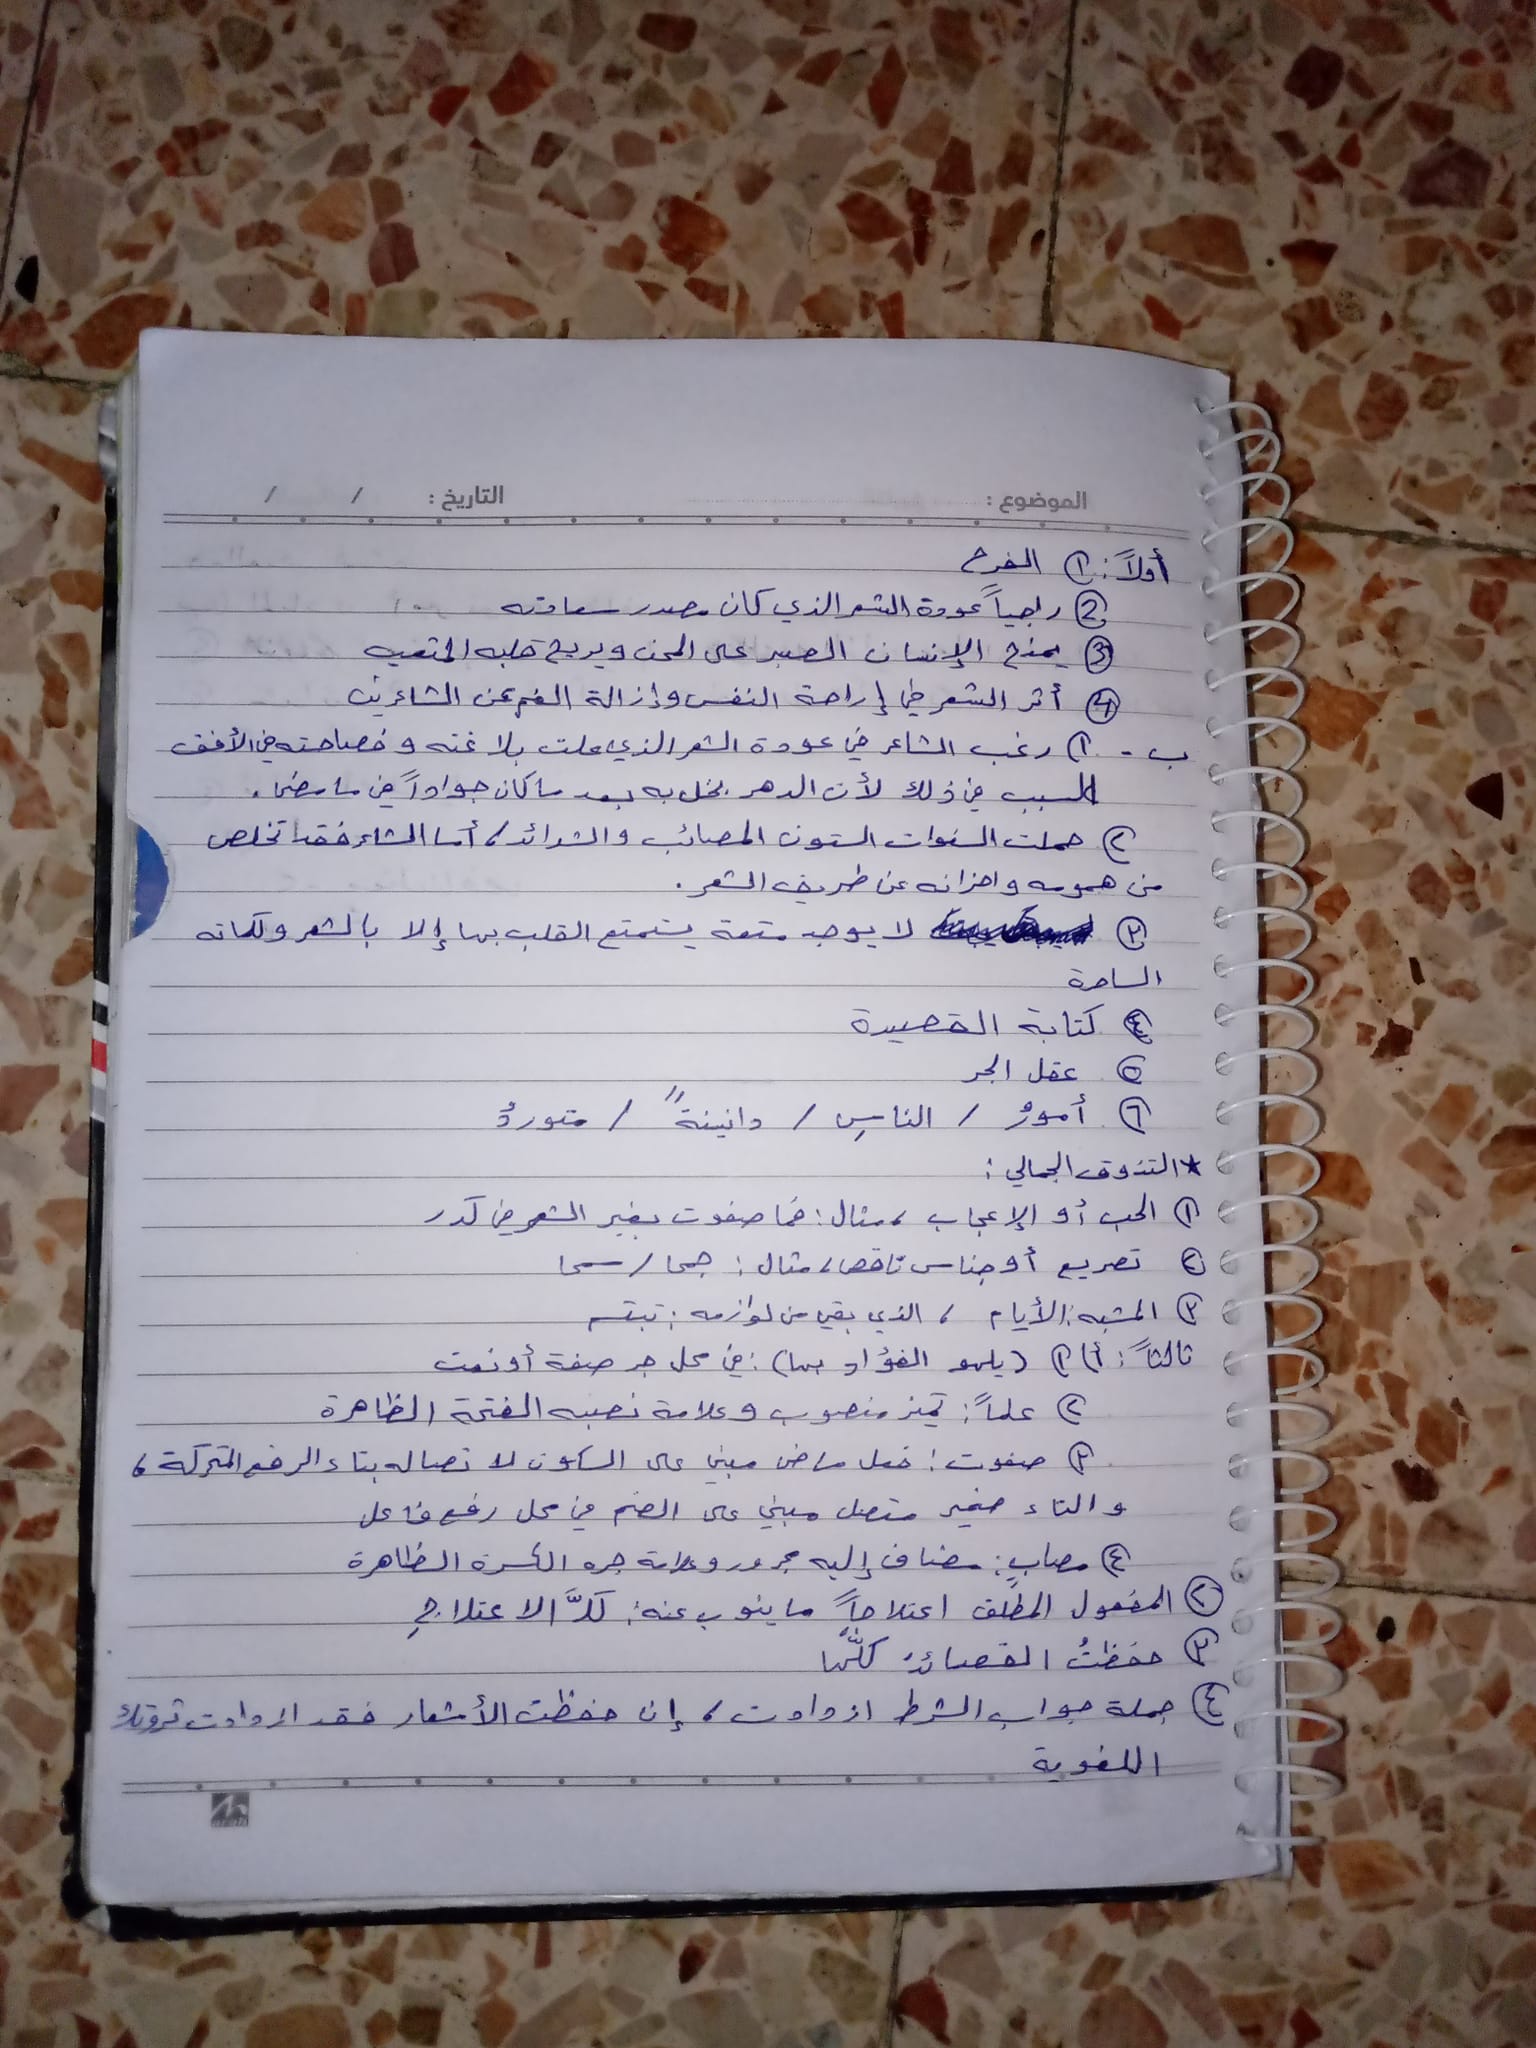 الموضوع : التاريخ : / /
أولاً: ① الفرح
② راجياً عودة الشعر الذي كان مصدر سعادته
③ يمنح الإنسان الصبر على المحن ويريح قلبه المتعب
④ أثر الشعر في إراحة النفس وإزالة الغم عن الشاعرين
ب - ① رغب الشاعر في عودة الشعر الذي علت بلاغته وفصاحته في الأفق
السبب في ذلك لأن الدهر بخل به بعد ما كان جواداً في ما مضى.
② حملت السنوات الستون المصائب والشدائد، أما الشاعر فقد تخلص
من همومه واحزانه عن طريق الشعر.
③ لا يوجد متعة يستمتع القلب بها إلا بالشعر وكلماته
الساحرة
④ كتابة القصيدة
⑤ عقل الحر
⑥ أمورُ / الناسِ / دانيةً / متوردُ
* التذوق الجمالي:
① الحب أو الإعجاب، مثال: فما صفوت بغير الشعر في كدر
② تصريع أو جناس ناقص، مثال: جمحا / سمحا
③ المشبه: الأيام، الذي بقي من لوازمه: تبتسم
ثالثاً: أ/ ① (يلهو الفؤاد بها): في محل جر صفة أو نعت
② علماً: تميز منصوب وعلامة نصبه الفتحة الظاهرة
③ صفوت: فعل ماض مبني على السكون لاتصاله بتاء الرفع المتحركة،
والتاء ضمير متصل مبني على الضم في محل رفع فاعل
④ مصابٍ: مضاف إليه مجرور وعلامة جره الكسرة الظاهرة
② المفعول المطلق اعتلاجاً ما ينوب عنه: كلَّ الاعتلاجِ
③ حفظتُ القصائدَ كلَّها
④ جملة جواب الشرط ازدادت، إن حفظت الأشعار فقد ازدادت ثروتك
اللغوية